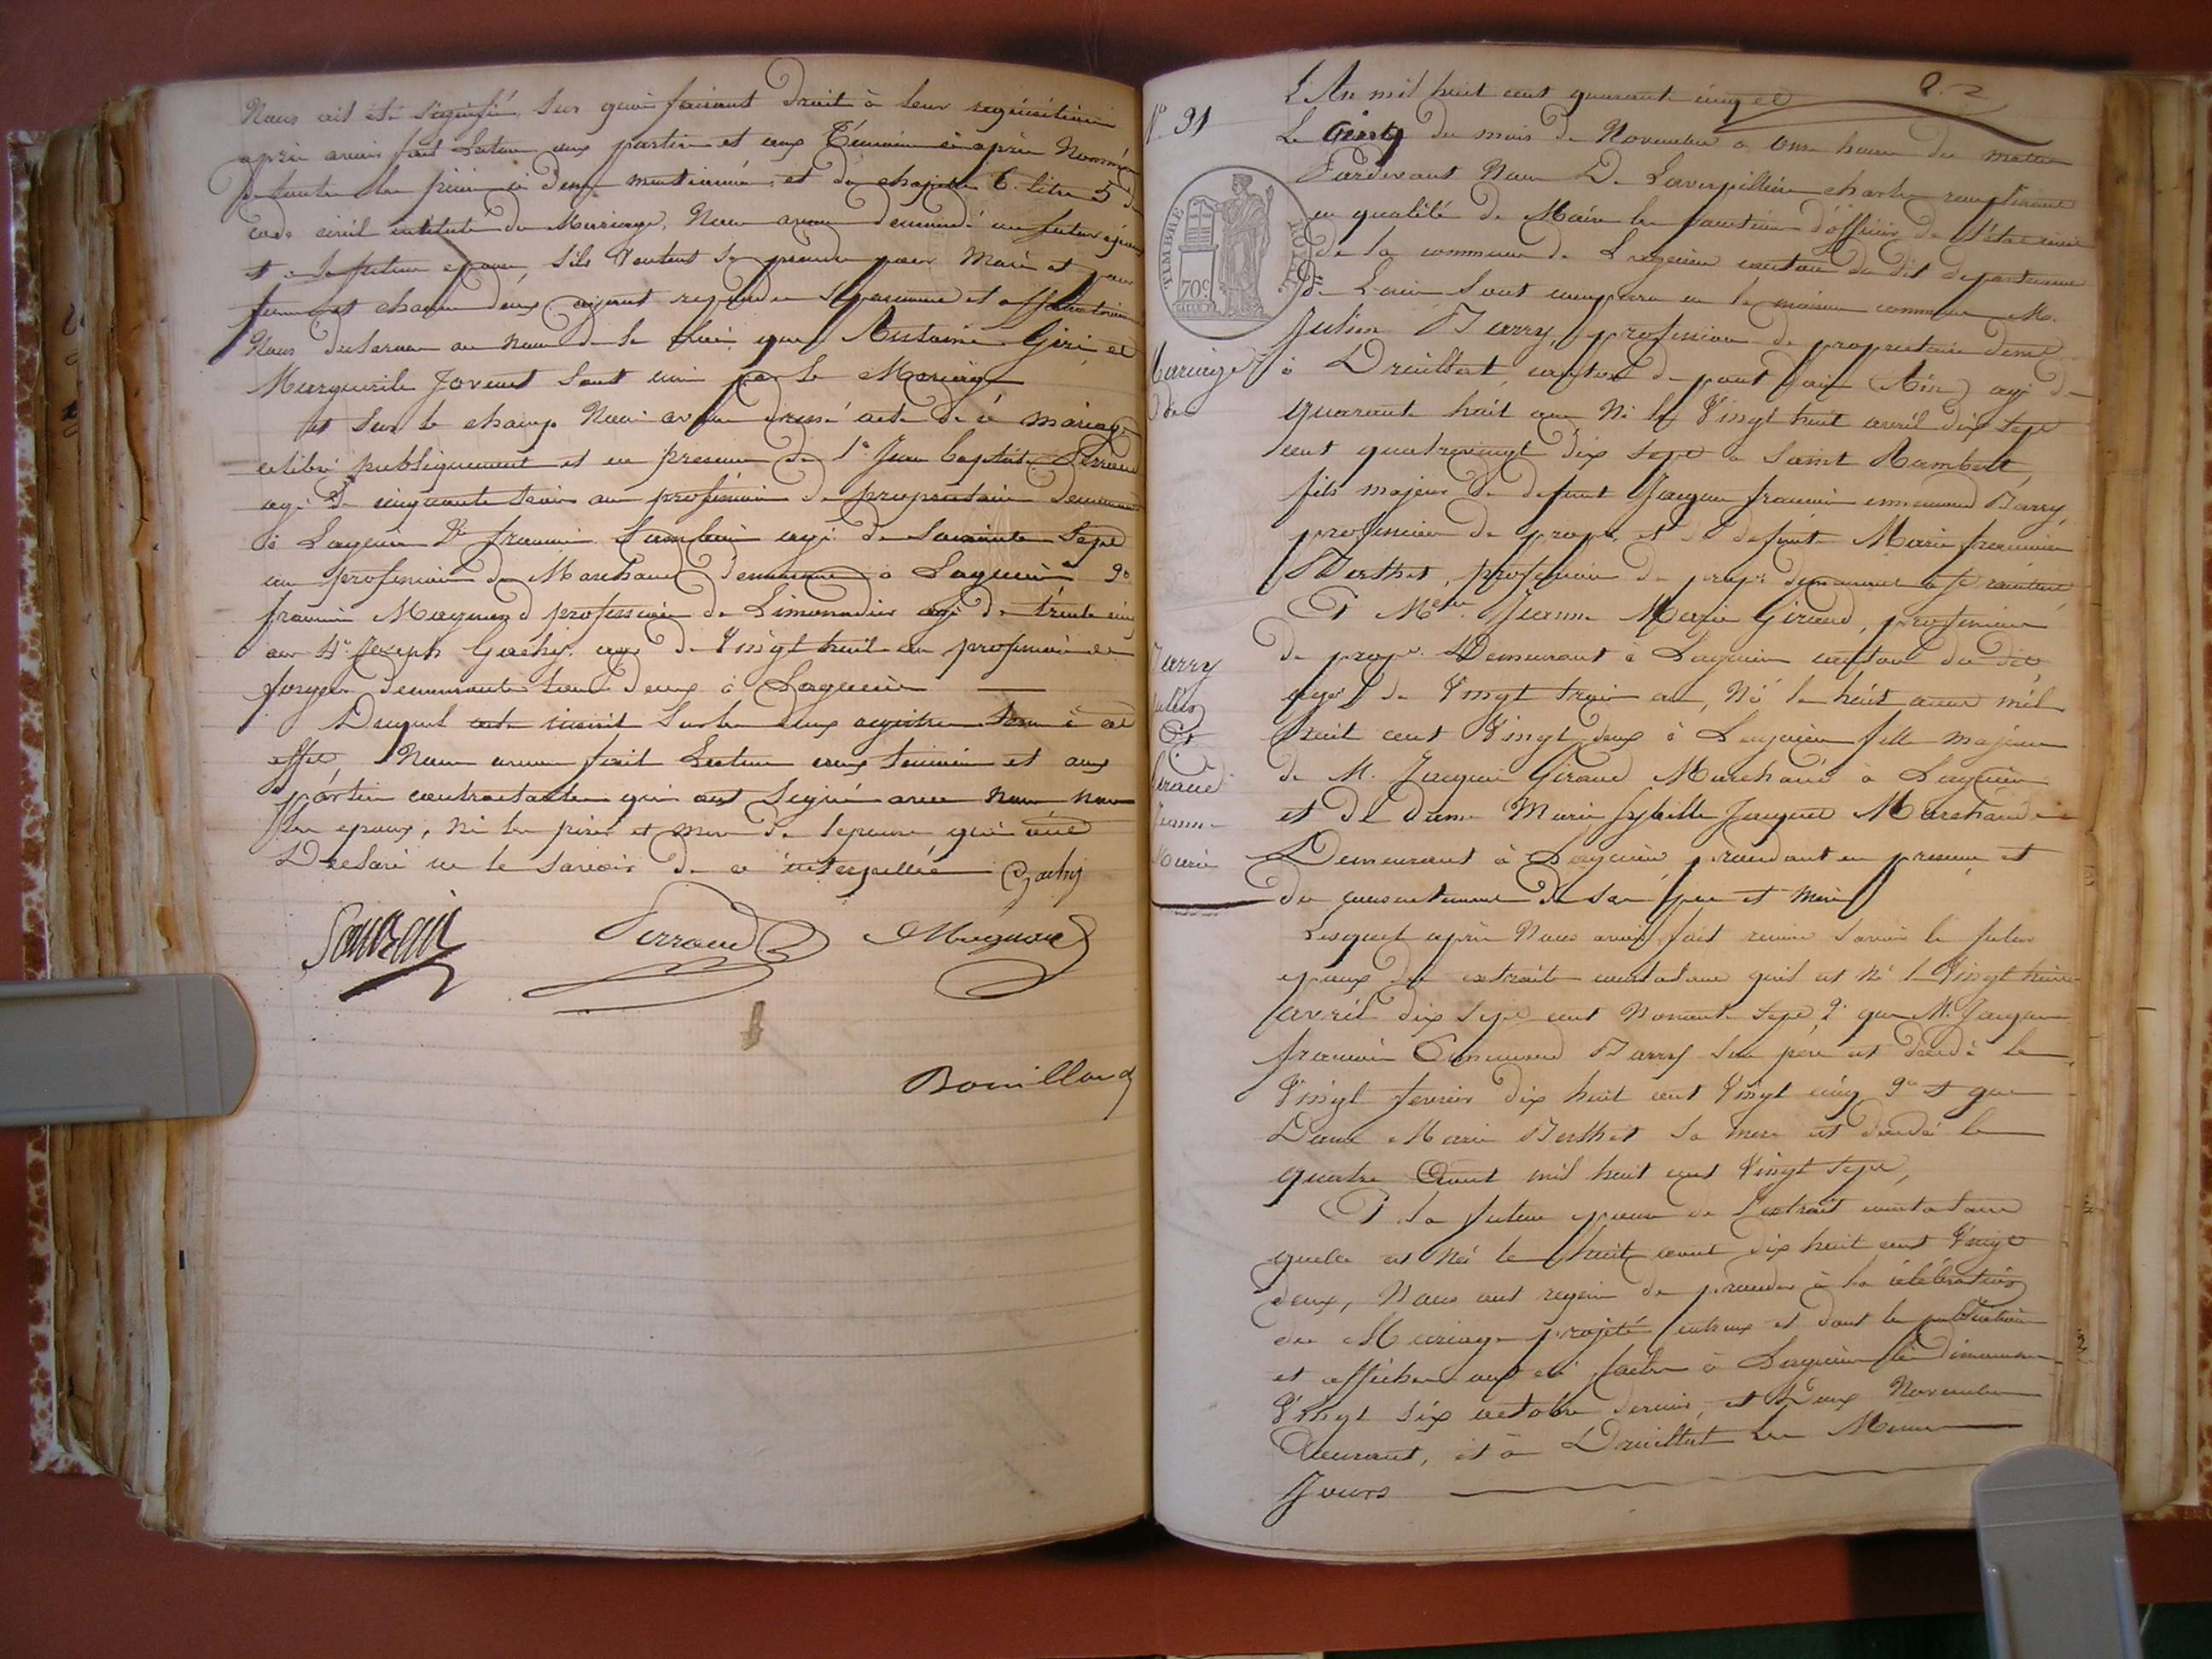 Nous ait été signifié, sur quoi faisant droit à leur réquisition
après avoir fait lecture aux parties et aux témoins ci après Nommés
de toutes les pièces ci dessus mentionnées, et du chapitre 6. titre 5 du
code civil intitulé du Mariage, Nous avons demandé au futur époux
et à la future épouse, s'ils veulent se prendre pour Mari et pour
femme et chacun deux ayant répondu séparement et affirmativement
Nous déclarons au nom de la Loi que Antoine Giri et
Marguerite Jovenet sont uni par le Mariage
et sur le champ Nous avons dressé acte de ce mariage
celibré publiquement et en presence de 1º Jean Baptiste Perraud
agé de cinquante trois ans profession de propriétaire demeurant
à Lagnieu 2º francois Sambain agé de soixante sept
ans profession de Marchand demeurant à Lagnieu 3º
francois Magnard profession de Limonadier agé de trente cinq
ans 4º Joseph Gachy agé de Vingt huit ans profession de
forger demeurants tous deux à Lagnieu
Duquel acte inscrit sur les deux registres tenu à cet
effet, Nous avons fait Lecture aux témoins et aux
parties contractantes qui ont signé avec nous non
les epoux, ni les pères et mere de l'epouse qui ont
Declaré ne le savoir de ce interpellés Gachy
Sambain Perraud Magnard
Bouillond
82
Nº 91
L'An mil huit cent quarante cinq et
Le cinq du mois de Novembre à onze heures du matin
Pardevant Nous D. Laverpillière charles remplissant
en qualité de Maire les fonctions d'officier de l'état civil
de la commune de Lagnieu canton du dit departement
de L'ain sont comparu en la maison commune M.
TIMBRE
70c
Julien Barry, profession de propriétaire demt
à Druillat, canton de pont d'ain (Ain) agé de
quarante huit ans Né le Vingt huit avril dix sept
cent quatrevingt dix sept à Saint Rambert,
fils majeur de defunt Jacques francois ennemond Barry,
profession de propre et de defunte Marie francoise
Berthet, profession de propre
Et Melle Jeanne Marie Giraud, profession
de propre Demeurant à Lagnieu canton du dit
agée de Vingt trois ans, Né le huit aout mil
huit cent Vingt deux à Lagnieu fille majeure
de M. Jacques Giraud Marchand à Lagnieu
et de dame Marie Sybille Jacquet Marchande
Demeurant à Lagnieu procédant en présence et
du consentement de son père et mère
Mariage
de
Barry
Julien
Et
Giraud
Jeanne
Marie
Lesquels après Nous avoir fait remise savoir le futur
epoux des extraits constatant qu'il est né le Vingt huit
avril dix sept cent Nonante sept, 2º que M. Jacques
francois Ennemond Barry son père est décédé le
Vingt fevrier dix huit cent Vingt cinq 3º et que
Dame Marie Berthet sa mere est décédé le
quatre Aout mil huit cent Vingt sept,
Et la future epouse de l'extrait constatant
quelle est Née le huit aout dix huit cent Vingt
deux, Nous ont requis de proceder à la célébration
du Mariage projeté entreux et dont les publications
et affiches ont été faites à Lagnieu les dimanches
Vingt six octobre dernier, et Deux Novembre
Courant, et à Druillat les Memes
Jours